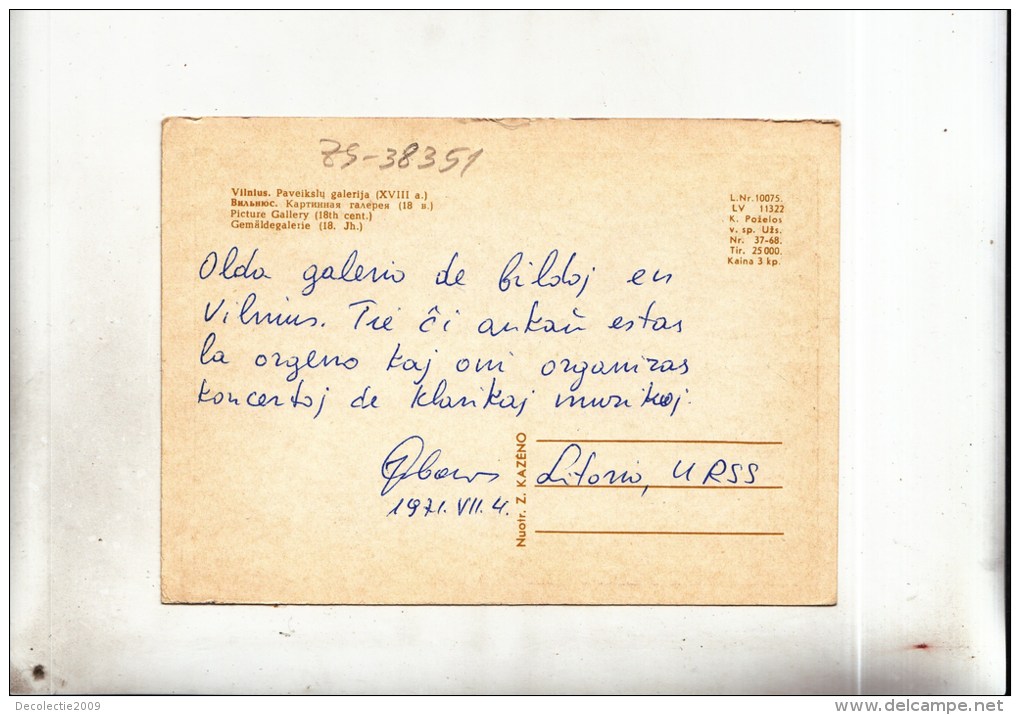 ZS-38351
Vilnius. Paveikslų galerija (XVIII a.)
Вильнюс. Картинная галерея (18 в.)
Picture Gallery (18th cent.)
Gemäldegalerie (18. Jh.)
L.Nr. 10075.
LV 11322
K. Poželos
v. sp. Užs.
Nr. 37-68.
Tir. 25 000.
Kaina 3 kp.
Olda galerio de bildoj en
Vilnius. Tie ĉi ankaŭ estas
la orgeno kaj oni organizas
koncertoj de klasikaj muzikoj.
Litovio, URSS
1971.VII.4.
Nuotr. Z. KAZĖNO
Decolectie2009
www.delcampe.net